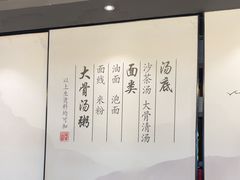 汤底
沙茶汤 大骨清汤
面类
油面 泡面
面线 米粉
大骨汤粥
以上主食资料均可加